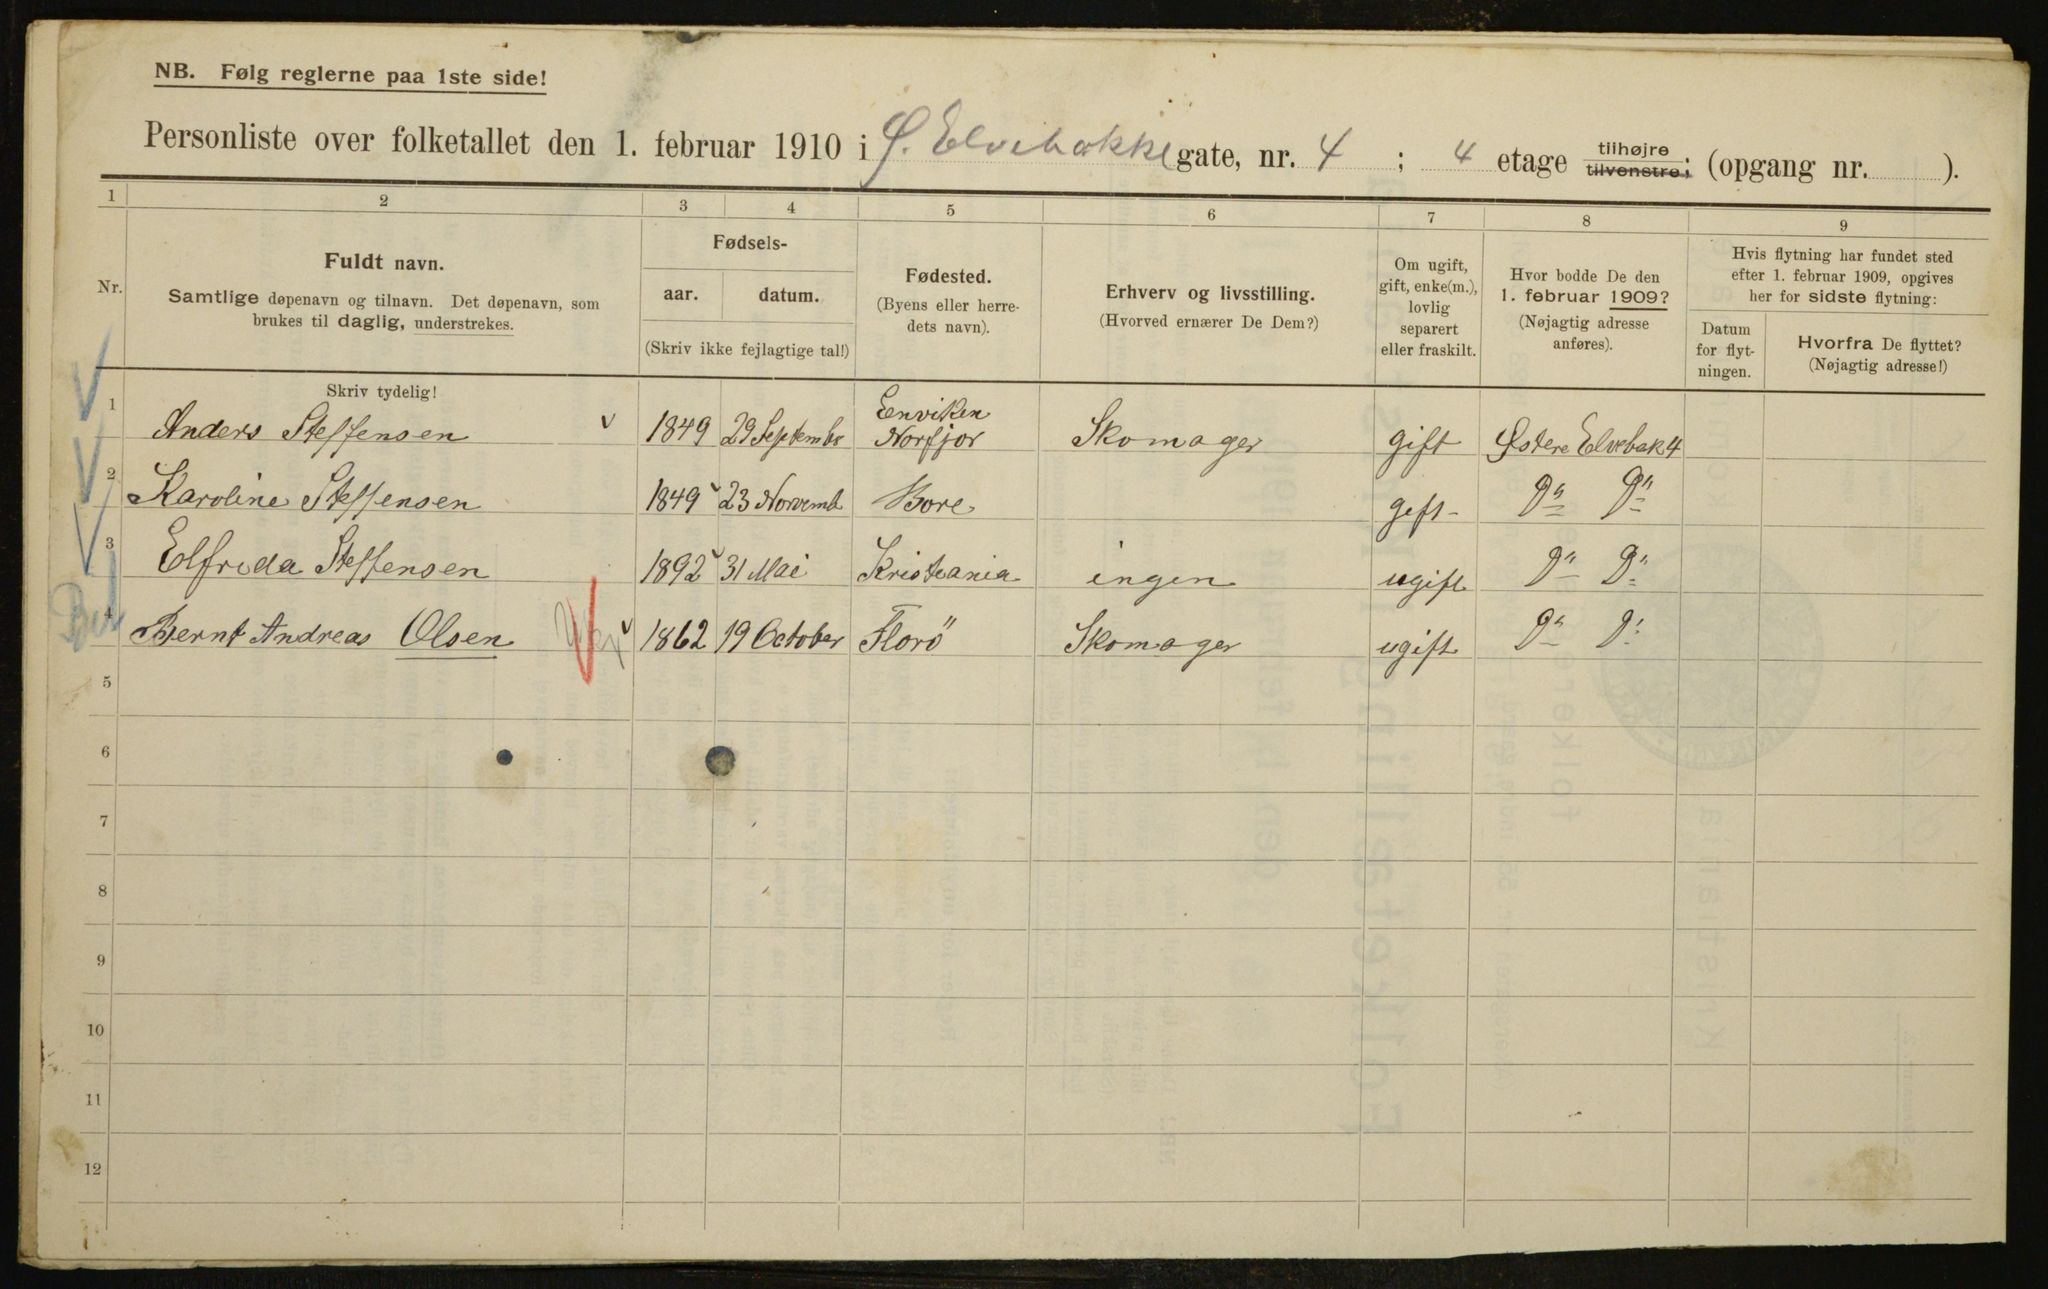 NB. Følg reglerne paa 1ste side!
Personliste over folketallet den 1. februar 1910 i Ø. Elvebakke gate, nr. 4 ; 4 etage tilhøjre tilvenstre; (opgang nr. ).
1 2 3 4 5 6 7 8 9
Nr.
Fuldt navn.
Samtlige døpenavn og tilnavn. Det døpenavn, som
brukes til daglig, understrekes.
Fødsels-
aar. datum.
(Skriv ikke fejlagtige tal!)
Fødested.
(Byens eller herre-
dets navn).
Erhverv og livsstilling.
(Hvorved ernærer De Dem?)
Om ugift,
gift, enke(m.),
lovlig
separert
eller fraskilt.
Hvor bodde De den
1. februar 1909?
(Nøjagtig adresse
anføres).
Hvis flytning har fundet sted
efter 1. februar 1909, opgives
her for sidste flytning:
Datum
for flyt-
ningen.
Hvorfra De flyttet?
(Nøjagtig adresse!)
Skriv tydelig!
1 Anders Steffensen 1849 29 Septembr Eenviken
Norfjor Skomager gift Østere Elvebak 4
2 Karoline Steffensen 1849 23 Norvemb Bore gift - D" D"
3 Elfrida Steffensen 1892 31 Mai Kristiania ingen ugift D" D"
4 Bernt Andreas Olsen 1862 19 October Florö Skomager ugift D" D"
5
6
7
8
9
10
11
12